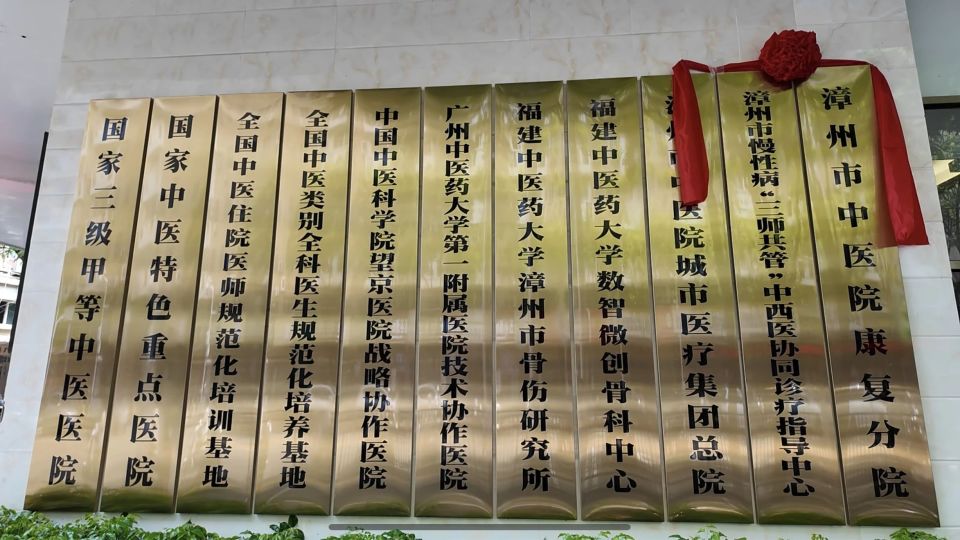 国家三级甲等中医医院
国家中医特色重点医院
全国中医住院医师规范化培训基地
全国中医类别全科医生规范化培养基地
中国中医科学院望京医院战略协作医院
广州中医药大学第一附属医院技术协作医院
福建中医药大学漳州市骨伤研究所
福建中医药大学数智微创骨科中心
中医院城市医疗集团总院
漳州市慢性病“三师共管”中西医协同诊疗指导中心
漳州市中医院康复分院